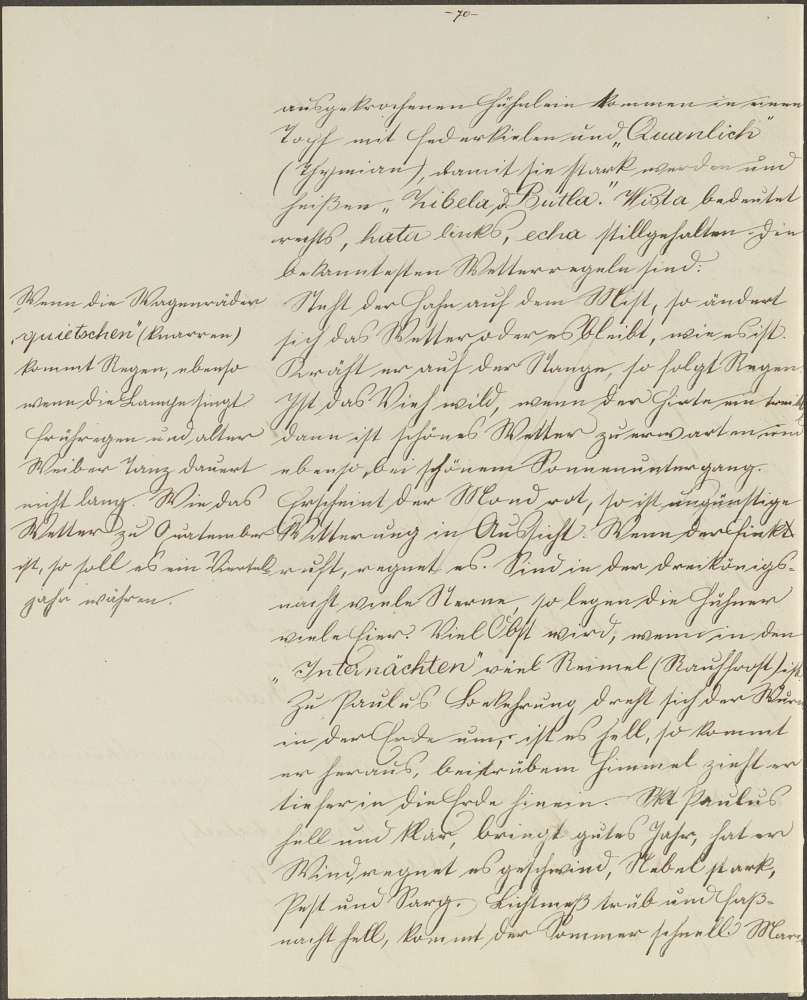 -70-
ausgekrochenen Hühnlein kommen in einen
Topf mit Federkielen und „Quanlich"
(Thymian), damit sie stark werden und
heißen „Zibela, d. Butla." Wista bedeutet
rechts, hata links, echa stillgehalten. Die
bekanntesten Wetterregeln sind:
Steht der Hahn auf dem Mist, so ändert
sich das Wetter oder es bleibt, wie es ist.
Kräht er auf der Stange, so folgt Regen.
Ist das Vieh wild, wenn der Hirte eintreibt
dann ist schönes Wetter zu erwarten und
ebenso, bei schönem Sonnenuntergang.
Erscheint der Mond rot, so ist ungünstige
Witterung in Aussicht. Wenn der Fink
ruft, regnet es. Sind in der Dreikönigs-
nacht viele Sterne, so legen die Hühner
viele Eier. Viel Obst wird, wenn in den
„Internächten" viel Reimel (Rauhfrost) ist.
Zu Paulus Bekehrung dreht sich der Wurm
in der Erde um, ist es hell, so kommt
er heraus, bei trübem Himmel zieht er
tiefer in die Erde hinein. Skt Paulus
hell und klar, bringt gutes Jahr, hat er
Wind, regnet es geschwind, Nebel stark,
Pest und Sarg. Lichtmeß trüb und Faß-
nacht hell, kommt der Sommer schnell. Mari
Wenn die Wagenräder
„quietschen" (knarren)
kommt Regen, ebenso
wenn die Lampe singt.
Frühregen und alter
Weiber Tanz dauert
nicht lang. Wie das
Wetter zu Quatember
ist, so soll es ein Viertel-
jahr währen.